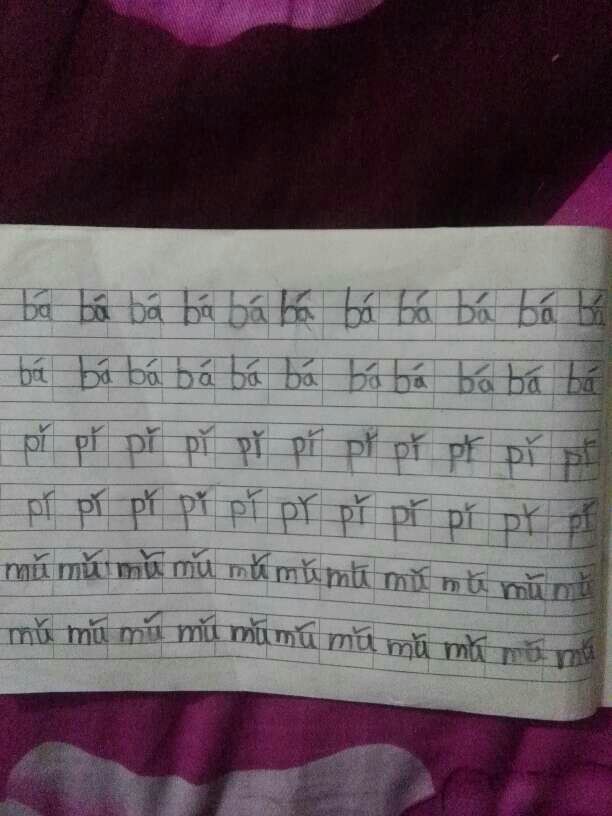 bá bá bá bá bá bá bá bá bá bá bá
bá bá bá bá bá bá bá bá bá bá bá
pǐ pǐ pǐ pǐ pǐ pǐ pǐ pǐ pǐ pǐ pǐ
pǐ pǐ pǐ pǐ pǐ pǐ pǐ pǐ pǐ pǐ pǐ
mǔ mǔ mǔ mǔ mǔ mǔ mǔ mǔ mǔ mǔ mǔ
mǔ mǔ mǔ mǔ mǔ mǔ mǔ mǔ mǔ mǔ mǔ